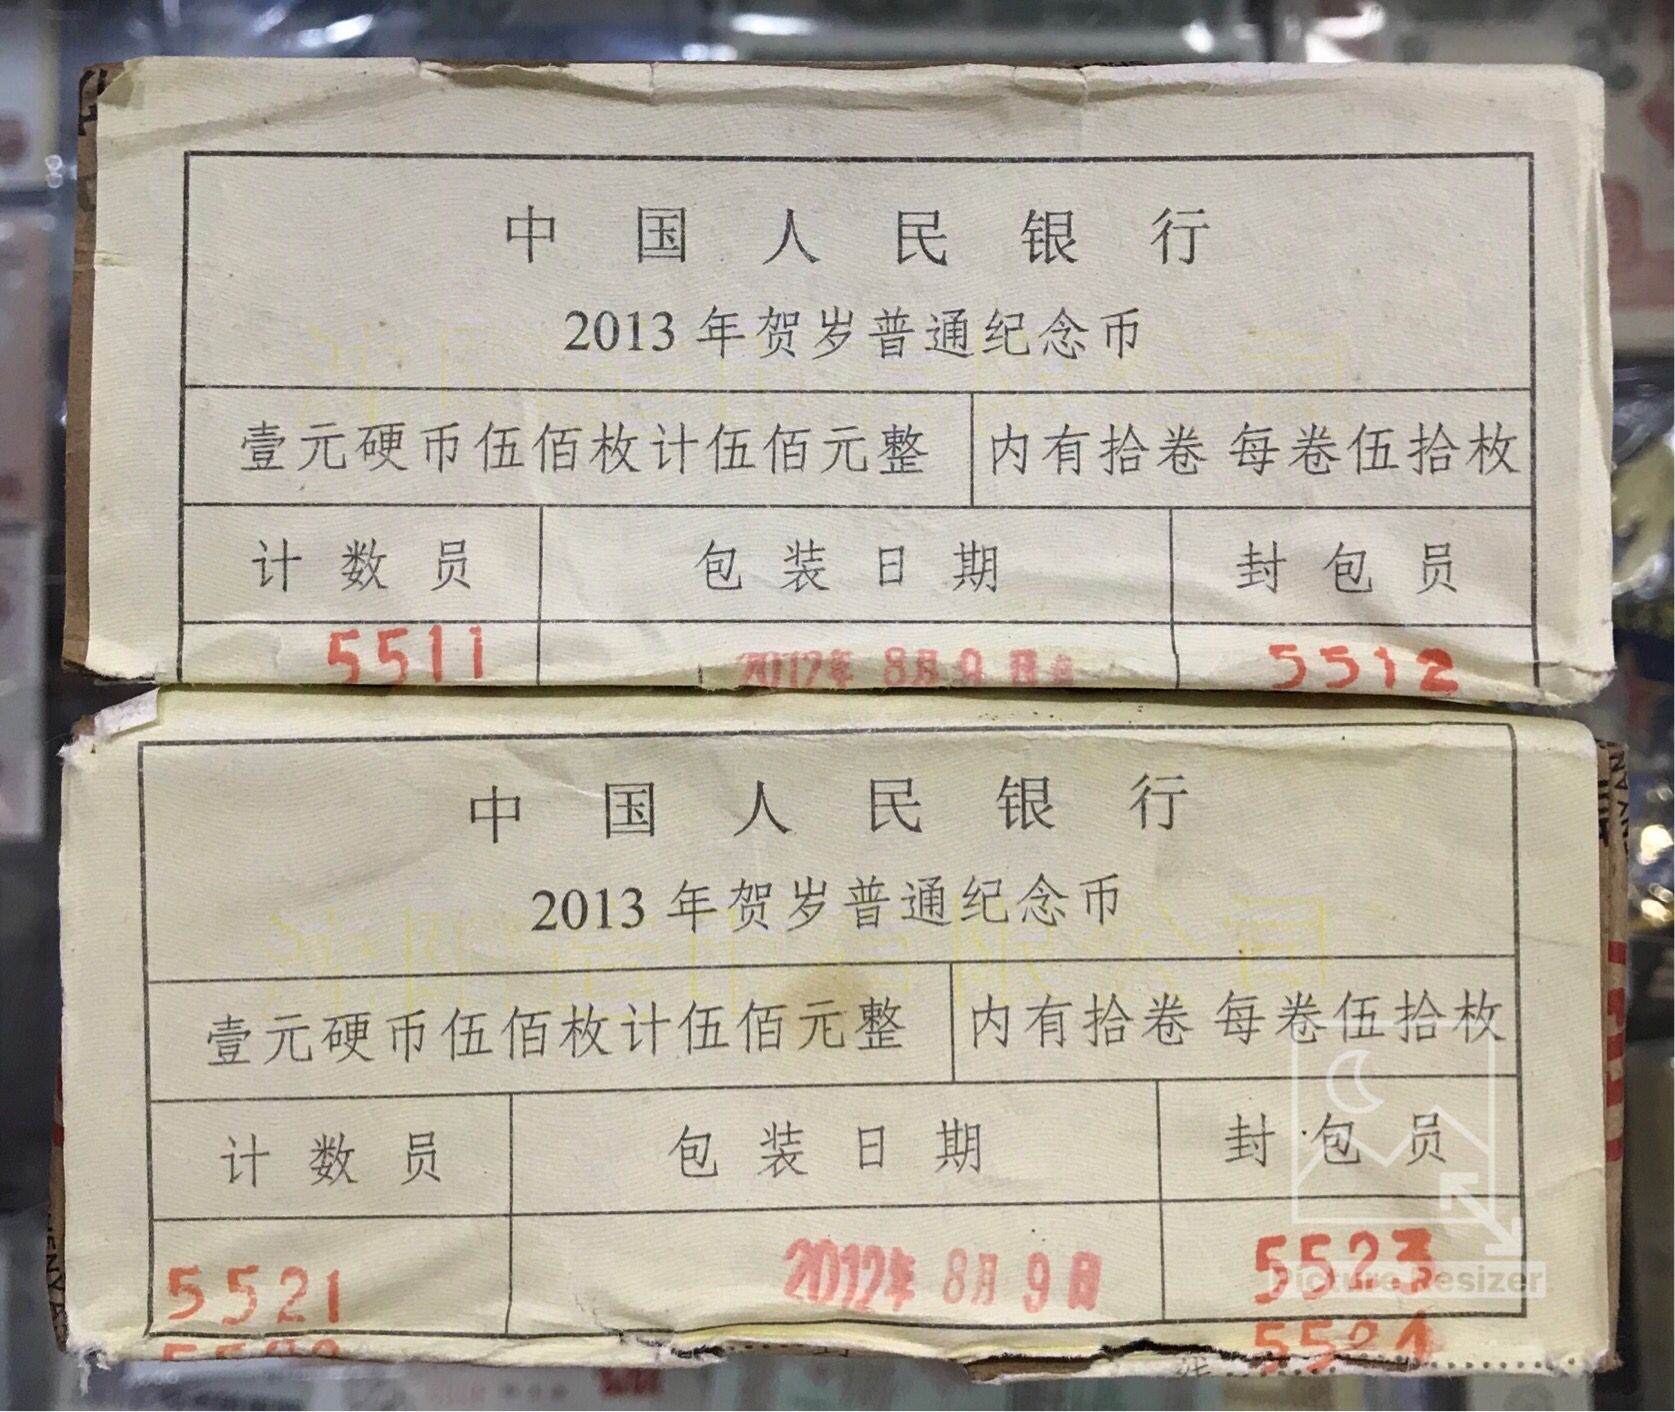 中国人民银行
2013年贺岁普通纪念币
壹元硬币伍佰枚计伍佰元整 内有拾卷 每卷伍拾枚
计数员 包装日期 封包员
5511 2012年8月9日 5512
中国人民银行
2013年贺岁普通纪念币
壹元硬币伍佰枚计伍佰元整 内有拾卷 每卷伍拾枚
计数员 包装日期 封包员
5521 2012年8月9日 5523
5524
Picture Resizer